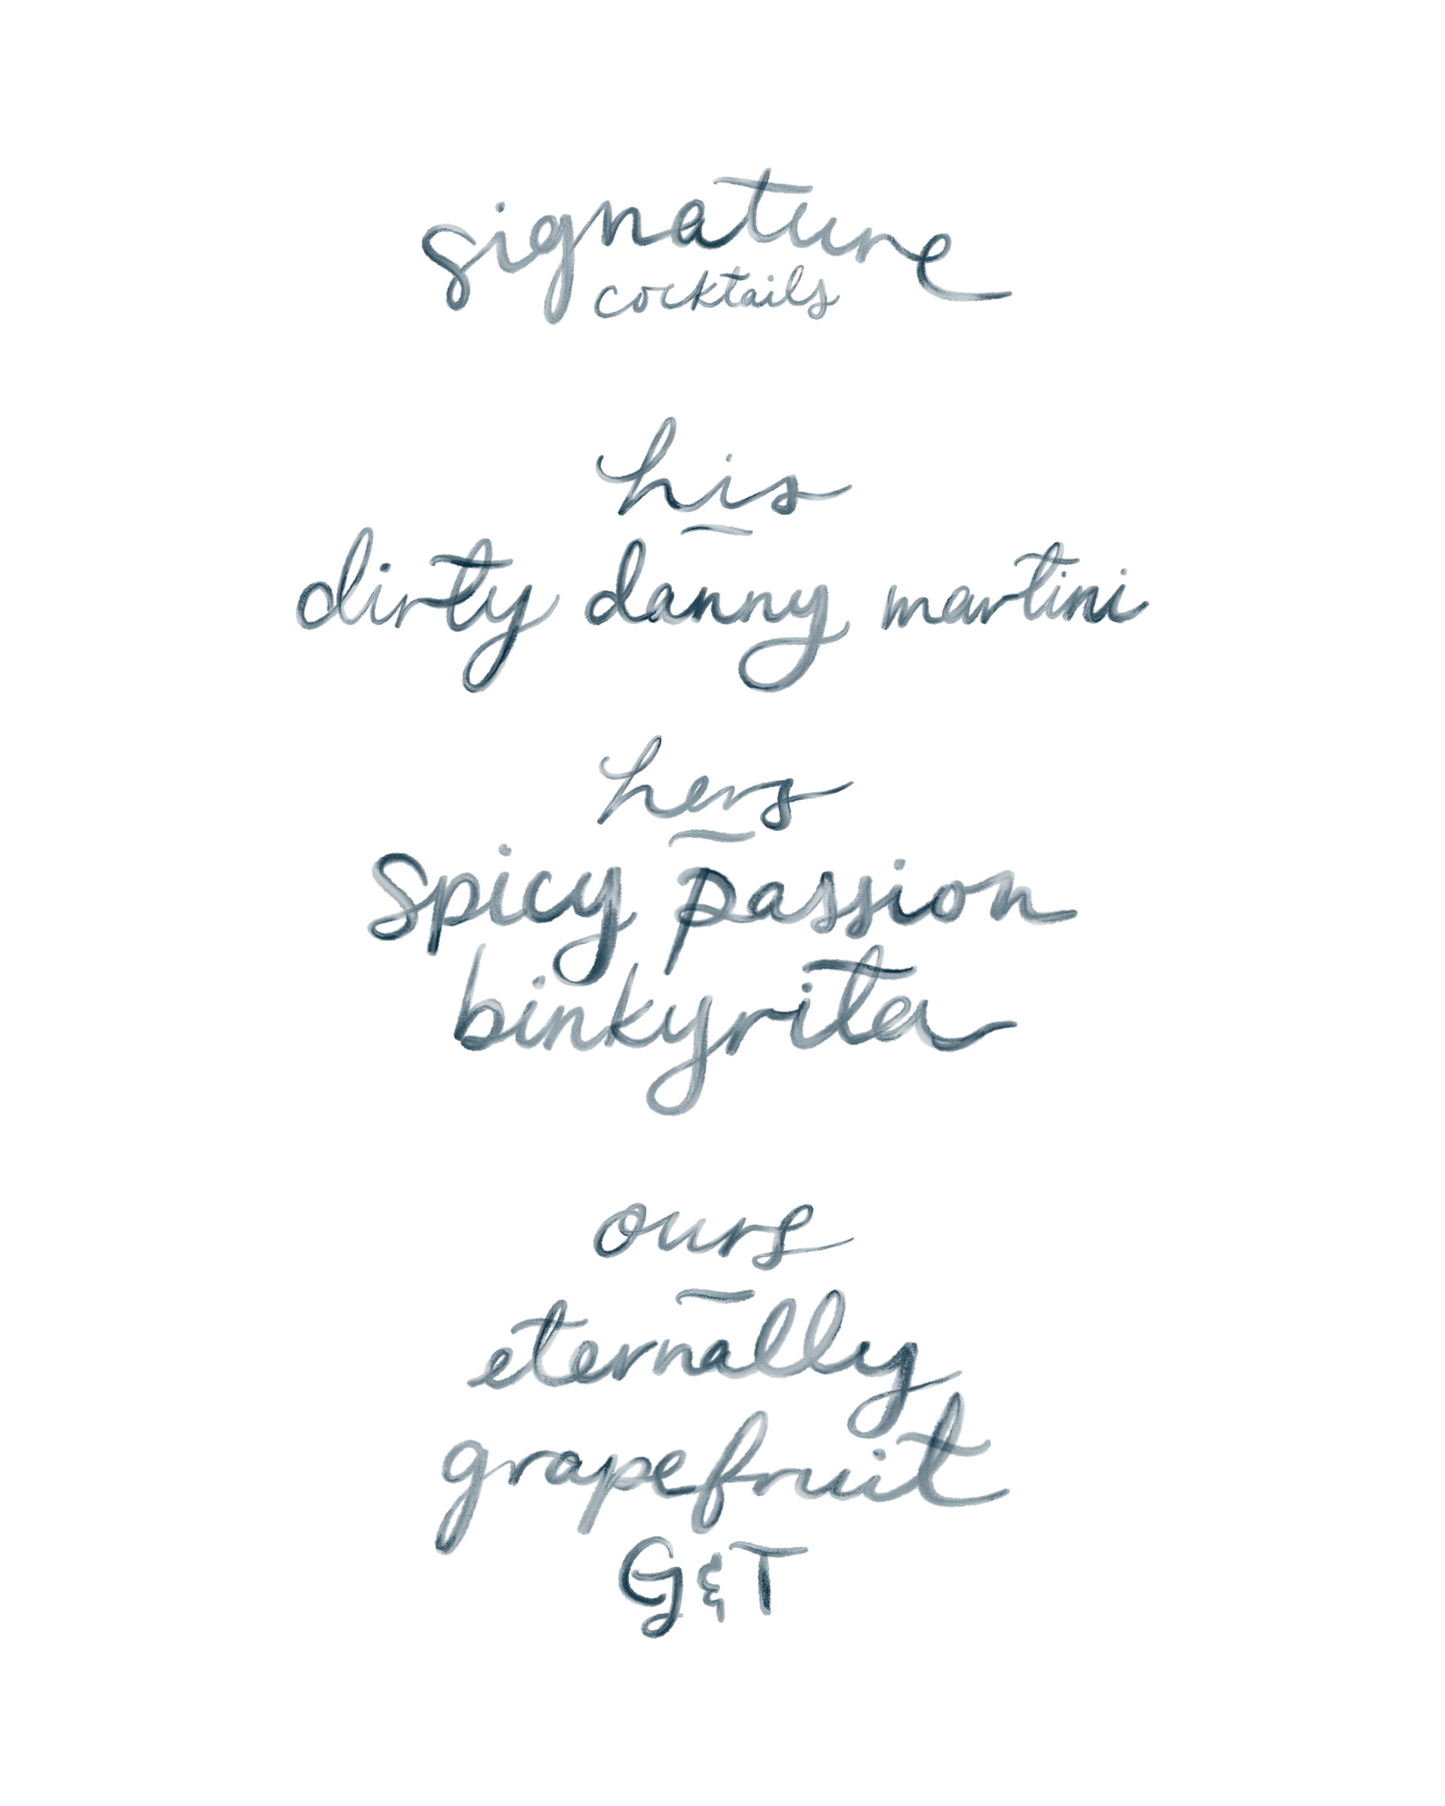 signature
cocktails
his
dirty danny martini
hers
Spicy passion
binkyrita
ours
eternally
grapefruit
G&T